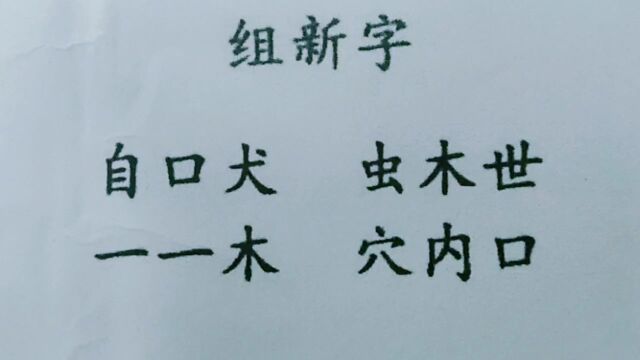 组新字
自口犬 虫木世
一一木 穴内口